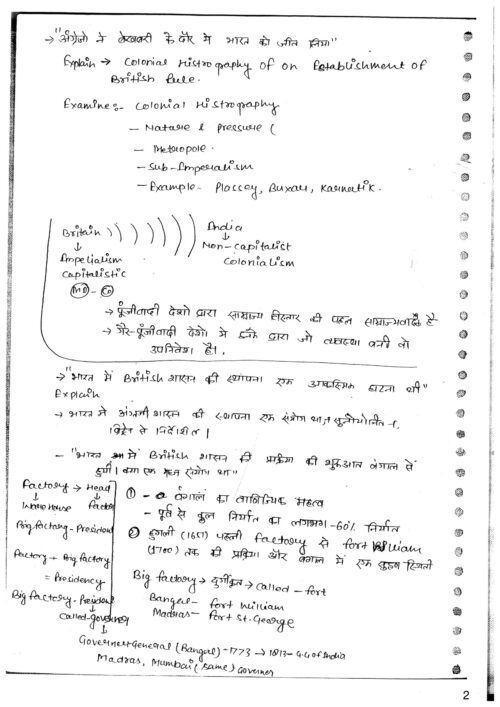 → "अंग्रेजो ने बेखबरी के दौर में भारत को जीत लिया"
Explain → Colonial Histrography of on Establishment of
British Rule.
Examine:- Colonial Histrography
- Nature & Pressure (
- Metropole.
- Sub-Imperialism
- Example - Plassey, Buxar, Karnatik.
Britain ) ) ) ) ) ) India
↓ ↓
Impelialism Non-Capitalist
Capitalistic Colonialism
→ पूँजीवादी देशो द्वारा साम्राज्य विस्तार की पहल साम्राज्यवाद है
→ गैर-पूँजीवादी देशो में इनके द्वारा जो व्यवस्था बनी वो
उपनिवेश है।
→ "भारत में British शासन की स्थापना एक आकस्मिक घटना थी"
Explain
→ भारत में अंग्रेजी शासन की स्थापना एक संयोग था, सुनियोजित
- "भारत में British शासन की प्रक्रिया की शुरुआत बंगाल से
हुयी। क्या एक संयोग था"
Factory → Head
↓ ↓
Ware House Factor
Big factory - President
Factory → Big factory
= Presidency
Big factory - President
↓
Called - governer
① - बंगाल का वाणिज्यिक महत्व
- पूर्व से कुल निर्यात का लगभग - 60% निर्यात
② हुगली (1651) पहली factory से fort William
(1700) तक की प्रक्रिया और बंगाल में एक सुदृढ़ स्थिति
Big factory → दुर्गीकृत → called - fort
Bangal - fort William
Madras - Fort St. George
↓
Governer General (Bangal) - 1773 → 1813 - G.G of India
Madras, Mumbai (same) Governer
2